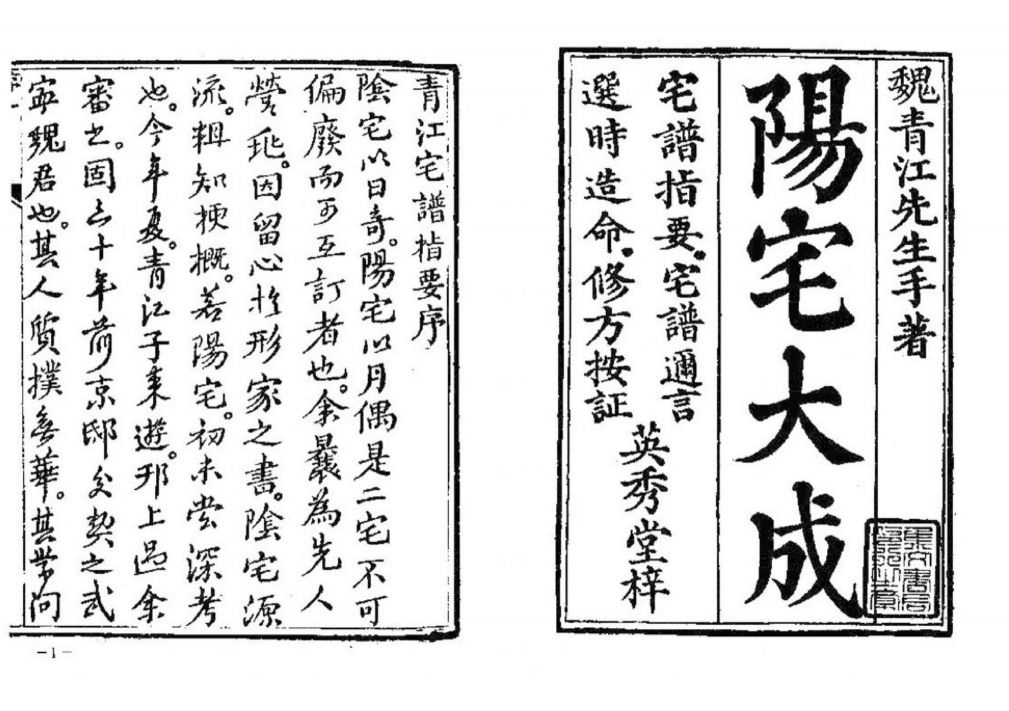 魏青江先生手著
陽宅大成
宅譜指要。宅譜邇言
選時造命。修方按証
英秀堂梓
青江宅譜指要序
陰宅以日奇。陽宅以月偶是二宅不可
偏廢而可互訂者也。余曩為先人
營兆。因留心於形家之書。陰宅源
流。輯知梗概。若陽宅。初未嘗深考
也。今年夏。青江子來遊。邗上過余
審之。固三十年前京邸交契之武
寧魏君也。其人質樸無華。其學問
-1-